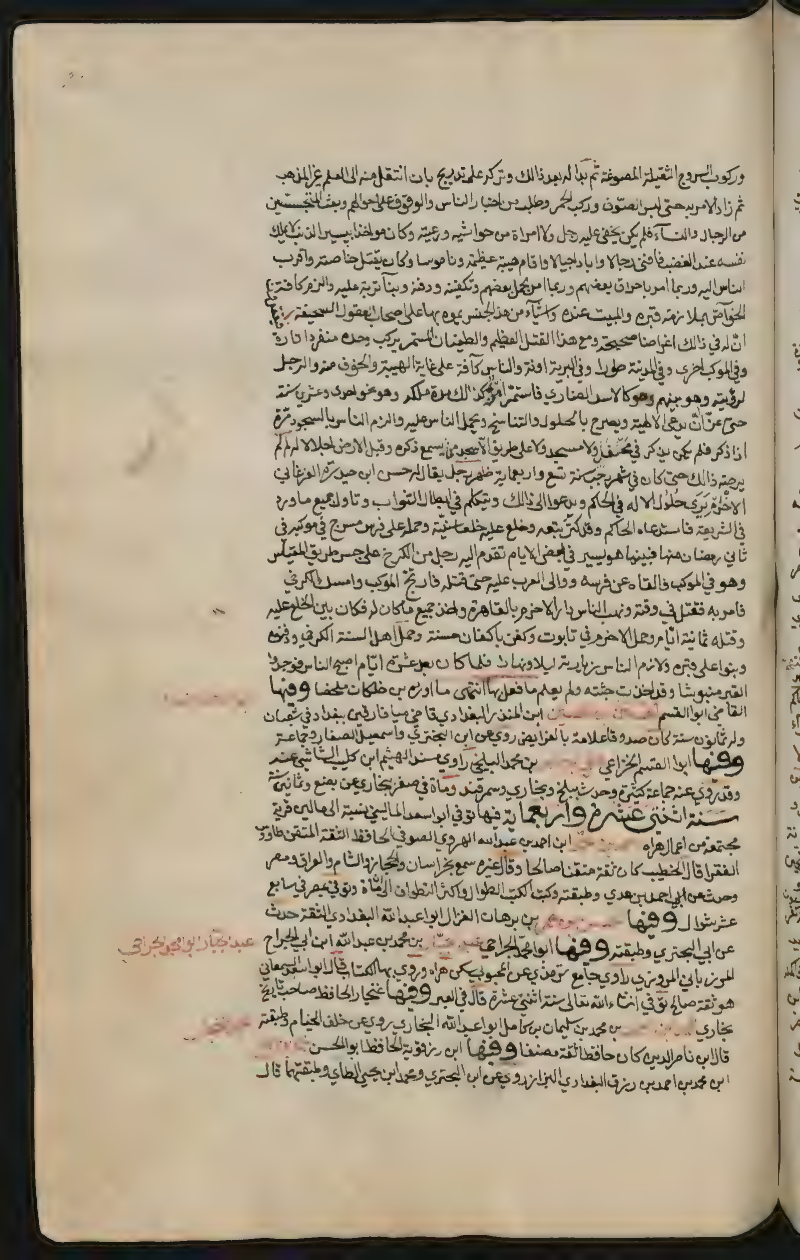 وركوب السروج الثقيلة المصوغة ثم بدا له بعد ذالك وترك على تدريج بان انتقل منه الى المعلم غير المذهب
ثم زاد الامر به حتى لبس الصوف وركب الحمر وطلب من اخبار الناس والوقوف على احوالهم وبعث المتجسسين
من الرجال والنساء فلم يكن يخفى عليه رجل ولا امراة من حواشيه ورعيته وكان مواخذا بيسير الذنب لا يملك
نفسه عند الغضب فافنى رجالا واباد اجيالا واقام هيبة عظيمة وناموسا وكان يقتل خاصته واقرب
الناس اليه وربما امر باحراق بعضهم وربما امر بحمل بعضهم وتكفينه ودفنه وبناء تربة عليه والزم كافة
الخواص بملازمة قبره والمبيت عنده واشياء من هذا الجنس يموه بها على اصحاب العقول السخيفة
ان له في ذالك اغراضا صحيحة ومع هذا القتل العظيم والطغيان المستمر يركب وحده منفردا تارة
وفي الموكب اخرى وفي المدينة طورا وفي البرية اونة والناس كافة على غاية الهيبة والخوف منه والوجل
لرؤيته وهو بينهم وهو كالاسد الضاري فاستمر امره كذالك مدة ملكه وهو نحو احدى وعشرين سنة
حتى عن ان يدعي الالهية ويصرح بالحلول والتناسخ ويحمل الناس عليه والزم الناس بالسجود مرة
اذا ذكر فلم يكن يذكر في محفل ولا مسجد ولا على طريق الا سجد من يسمع ذكره وقبل الارض اجلالا له ثم لم
يرضه ذالك حتى كان في شهر رجب سنة تسع واربعماية ظهر رجل يقال له حسن ابن حيدرة الفرغاني
الاخرم يرى حلول الاله في الحاكم ويدعوا الى ذالك ويتكلم في ابطال الثواب وتاول جميع ما ورد
في الشريعة فاستدعاه الحاكم وقد كثر تبعه وخلع عليه خلعا سنية وحمله على فرس مسرج في موكبه في
ثاني رمضان منها فبينما هو يسير في بعض الايام تقدم اليه رجل من الكرخ على جسر طريق المقياس
وهو في الموكب فالقاه عن فرسه ووالى الضرب عليه حتى قتله فارتج الموكب وامسك الكرخي
فامر به فقتل في وقته ونهب الناس دار الاخرم بالقاهرة واخذ جميع ما كان له فكان بين الخلع عليه
وقتله ثمانية ايام وحمل الاخرم في تابوت وكفن باكفان حسنة وحمل اهل السنة الكرخي ودفنوه
وبنوا على قبره ولازم الناس زيارته ليلا ونهارا فلما كان بعد عشرة ايام اصبح الناس فوجدوا
القبر منبوشا وقد اخذت جثته ولم يعلم ما فعل بها انتهى ما اورده بن خلكان ملخصا وفيها
القاضي ابوا القسم ابن المنذر البغدادي قاضي ميافارقين ببغداد في شعبان
وله ثمانون سنة كان صدوقا علامة بالفرايض روى عن ابن البختري واسمعيل الصفار وجماعة
وفيها ابوا القسم الخزاعي بن محمد البلخي راوي مسند الهيثم ابن كليب الشاشي عنه
وقد روى عنه جماعة كثيرة وحدث ببلخ وبخارى وسمرقند ومات في صفر ببخارى عن بضع وثمانين سنة
سنة اثنتي عشرة واربعماية فيها توفي ابو اسعد الماليني نسبة الى مالين قرية
مجتمعة من اعمال هراه ابن احمد بن عبد الله الهروي الصوفي الحافظ الثقة المتقن طاووس
الفقرا قال الخطيب كان ثقة متقنا صالحا وقال غيره سمع بخراسان والحجاز والشام والعراق ومصر
وحدث عن ابي احمد بن عدي وطبقته وكتب الكتب الطوال واكثر التطواف الى ان مات وتوفي بمصر في سابع
عشر شوال وفيها بن برهان الغزال ابوا عبد الله البغدادي الثقة حدث
عن ابي البختري وطبقته وفيها ابوا محمد الجراحي بن محمد بن عبد الله ابن ابي الجراح
المرزباني المروزي راوي جامع الترمذي عن المحبوبي سكن هراه وروى بها الكتاب قال ابوا سعد السمعاني
هو ثقة صالح توفي ان شاء الله تعالى سنة اثنتي عشرة قاله في العبر وفيها غنجار الحافظ صاحب تاريخ
بخارى بن محمد بن سليمان بن كامل ابوا عبد الله البخاري روى عن خلف الخيام وطبقته
قال ابن ناصر الدين كان حافظا ثقة مصنفا وفيها ابن رزقوية الحافظ ابو الحسن
ابن محمد بن احمد بن رزق البغدادي البزاز روى عن ابن البختري ومحمد ابن يحيى الطاي وطبقتهما قال
عبد الجبار ابو محمد الجراحي